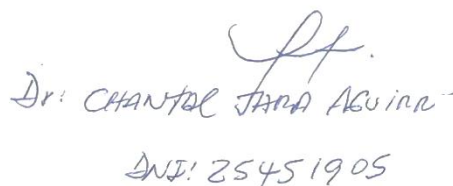 Dr: CHANTAL JARA AGUIRR
DNI: 25451905